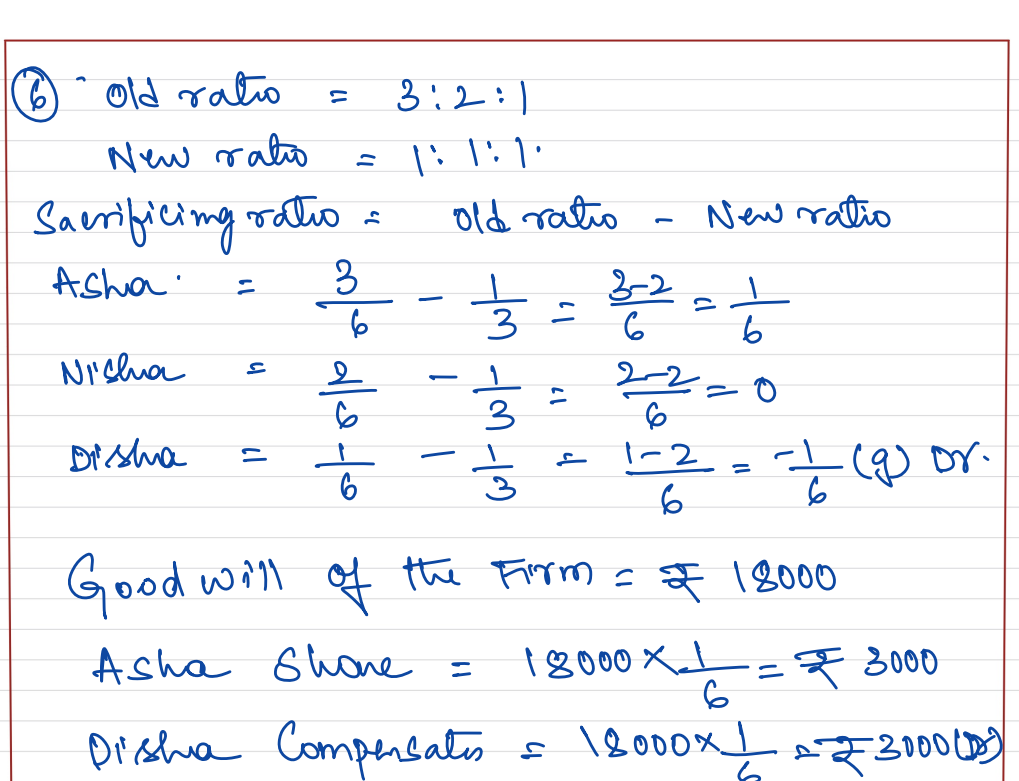 ⑥ Old ratio = 3:2:1
New ratio = 1:1:1.
Sacrificing ratio = Old ratio - New ratio
Asha = 3/6 - 1/3 = 3-2/6 = 1/6
Nisha = 2/6 - 1/3 = 2-2/6 = 0
Disha = 1/6 - 1/3 = 1-2/6 = -1/6 (g) Dr.
Goodwill of the Firm = ₹ 18000
Asha Share = 18000 × 1/6 = ₹ 3000
Disha = 18000 × 1/6 = ₹ 3000